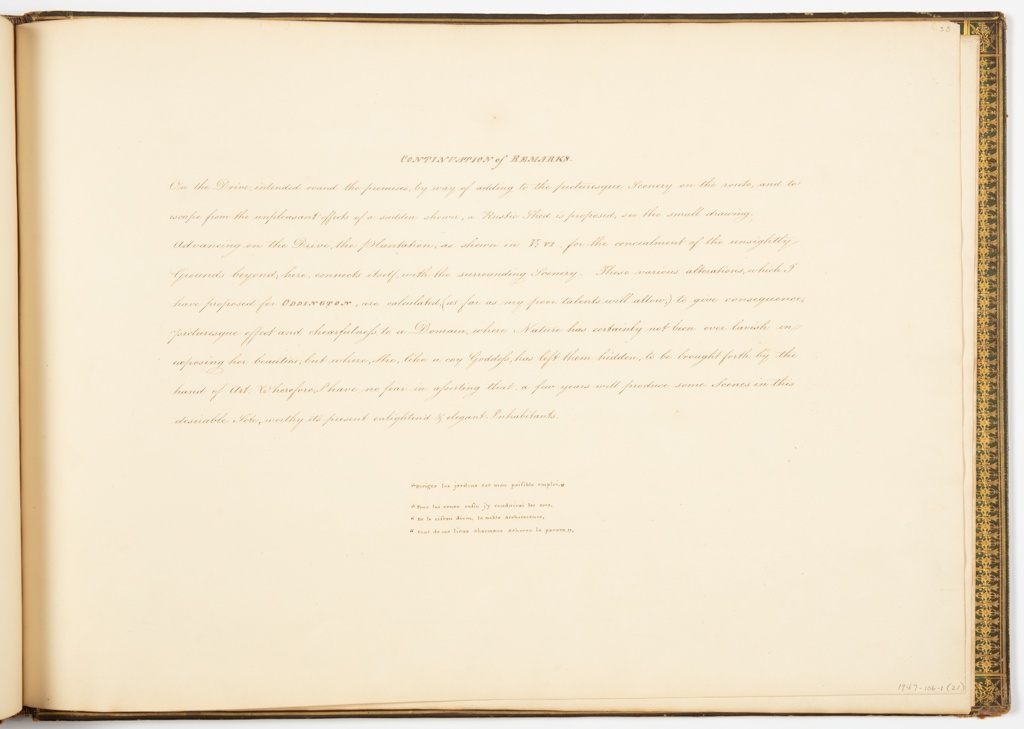 CONTINUATION of REMARKS.
On the Drive, intended round the premises, by way of adding to the picturesque Scenery on the route, and to
escape from the unpleasant effects of a sudden shower, a Rustic Shed is proposed, see the small drawing.
Advancing on the Drive, the Plantation, as shewn in for the concealment of the unsightly
Grounds beyond, here, connects itself, with the surrounding Scenery. These various alterations, which I
have proposed for ODDINGTON, are calculated, (as far as my poor talents will allow,) to give consequence,
picturesque effect and chearfulneſs to a Domain, where Nature has certainly not been over lavish in
exposing her beauties, but where, She, like a coy Goddeſs, has left them hidden, to be brought forth by the
hand of Art. Wherefore, I have no fear in aſserting that a few years will produce some Scenes in this
desirable Site, worthy its present enlighten'd & elegant Inhabitants.
les jardins est mon paisible emploi.
Pour les orner enfin j'y conduirai les arts,
le ciseau divin, la noble architecture,
de ces lieux charmans la parure
1947-106-1 (21)